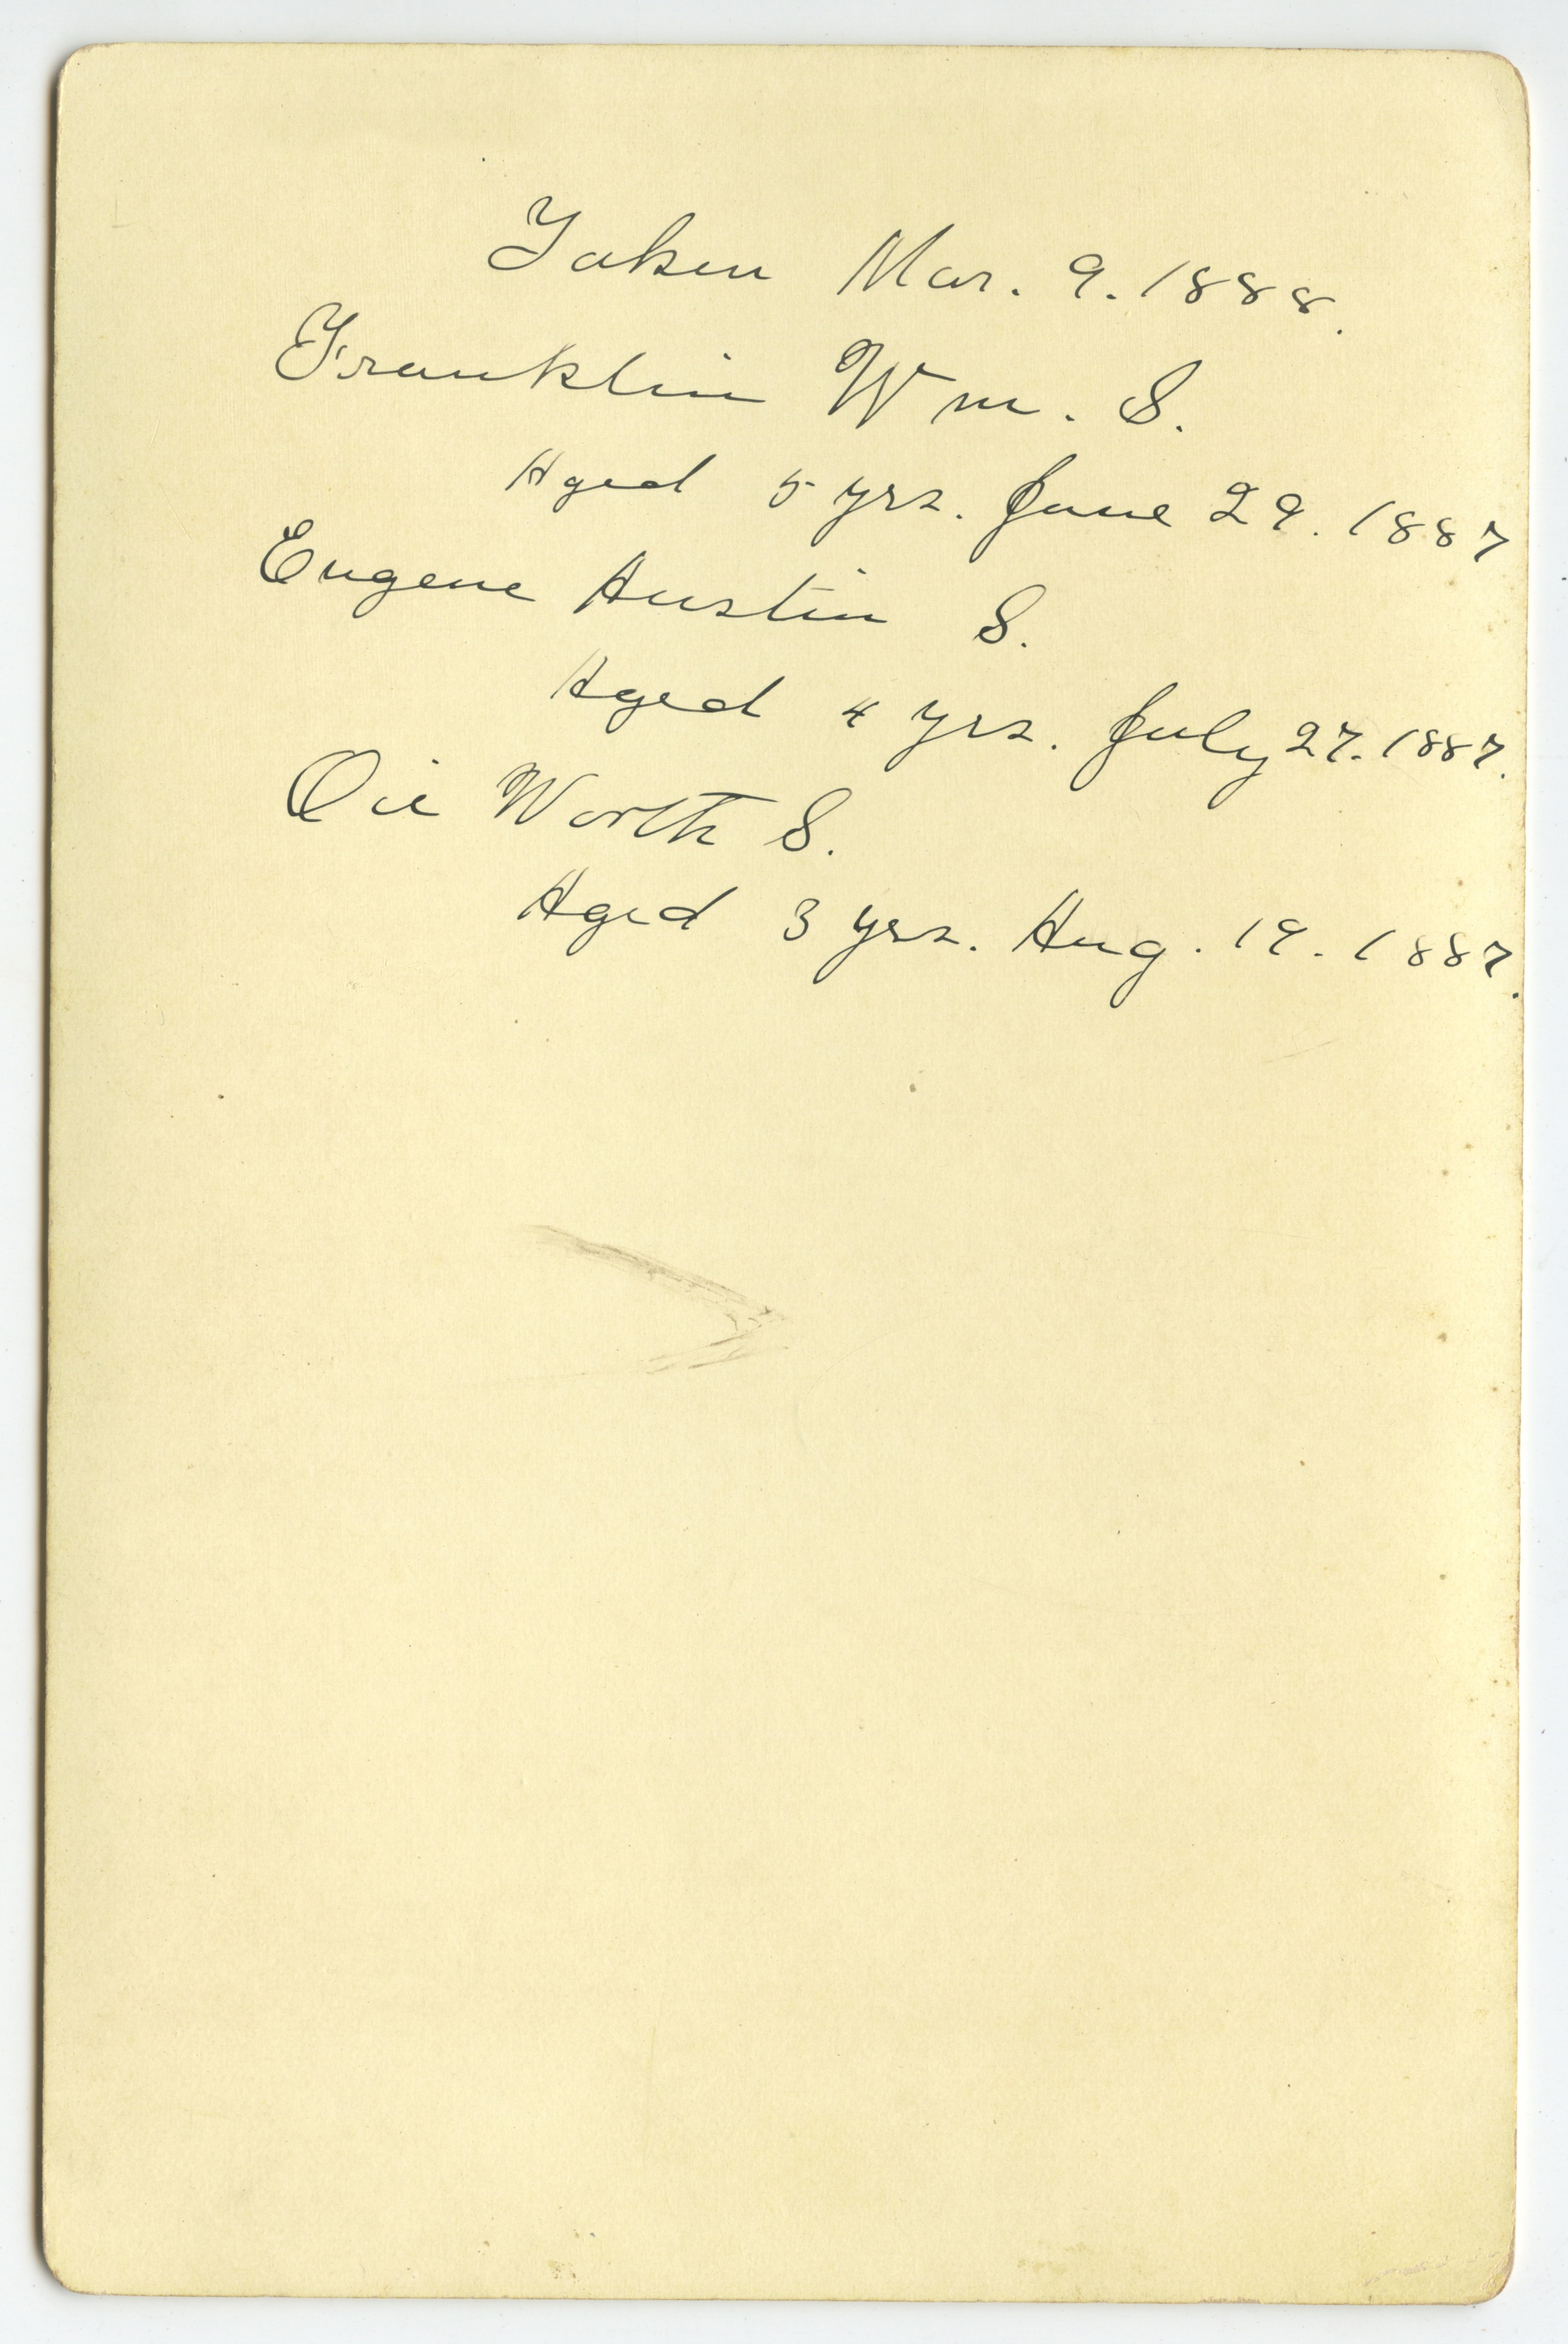 Taken Mar. 9. 1888.
Franklin Wm. S.
Aged 5 yrs. June 29. 1887
Eugene Austin S.
Aged 4 yrs. July 27. 1887.
Worth S.
Aged 3 yrs. Aug. 19. 1887.